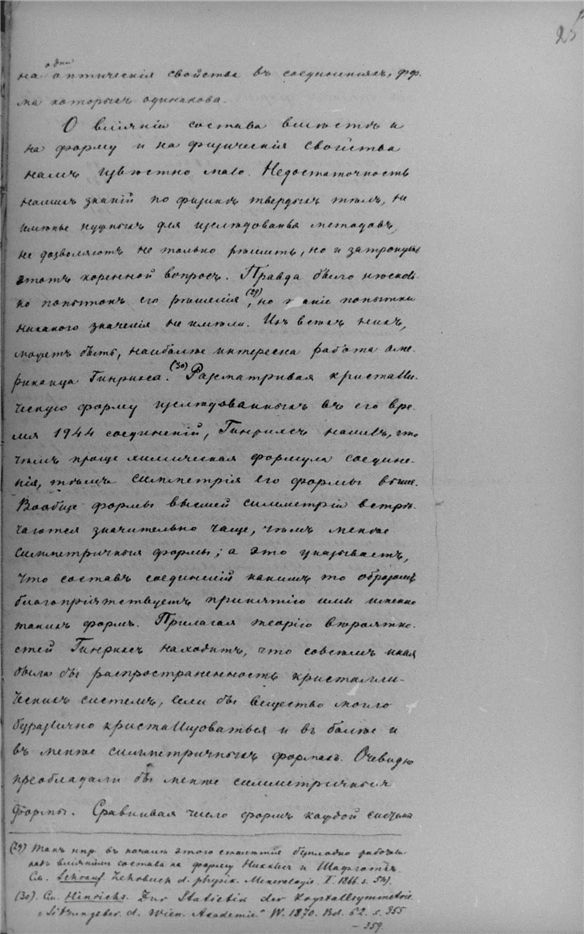 25
одни
на оптическія свойства въ соединеніяхъ, фор-
ма которыхъ одинакова.
О вліяніи состава веществъ и
на форму и на физическія свойства
намъ извѣстно мало. Недостаточность
нашихъ знаній по физикѣ твердыхъ тѣлъ, не
имѣніе нужныхъ для изслѣдованія методовъ,
не дозволяютъ не только рѣшить, но и затронуть
этотъ коренной вопросъ. Правда было нѣсколь-
ко попытокъ его рѣшенія (29), но такіе попытки
никакого значенія не имѣли. Изъ всѣхъ нихъ,
можетъ быть, наиболѣе интересна работа аме-
риканца Гинрихса. (30) Разсматривая кристалли-
ческую форму изслѣдованныхъ въ его вре-
мя 1944 соединеній, Гинрихсъ нашелъ, что
чѣмъ проще химическая формула соедине-
нія, тѣмъ симметрія его формы выше.
Вообще формы высшей симметріи встрѣ-
чаются значительно чаще, чѣмъ менѣе
симметричныя формы; а это указываетъ,
что составъ соединеній какимъ то образомъ
благопріятствуетъ принятію ими именно
такихъ формъ. Прилагая теорію вѣроятно-
стей Гинрихсъ находитъ, что совсѣмъ иная
была бы распространенность кристалли-
ческихъ системъ, если бы вещество могло
безразлично кристаллизоваться и въ болѣе и
въ менѣе симметричныхъ формахъ. Очевидно
преобладали бы менѣе симметричныя
формы. Сравнивая число формъ каждой системы
(29) Такъ напр. въ началѣ этого столѣтія работали
надъ вліяніемъ состава на форму
См. Schrauf. Lehrbuch d. physik. Mineralogie. II. 1868. s.
(30). См. Hinrichs. Zur Statistik der Krystallsymmetrie.
"Sitzungsber. d. Wien. Akademie." W. 1870. Bd. 62. s. 355
– 359